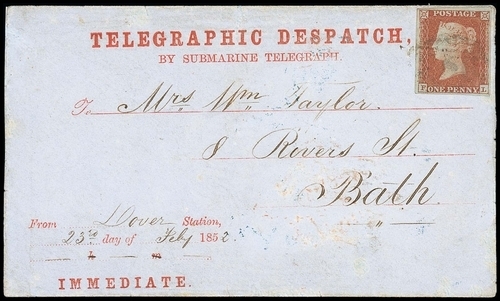 TELEGRAPHIC DESPATCH,
BY SUBMARINE TELEGRAPH.
POSTAGE
ONE PENNY
To Mrs Wm Taylor.
8 Rivers St.
Bath.
From Dover Station,
23rd day of Feby 1852
h m
IMMEDIATE.